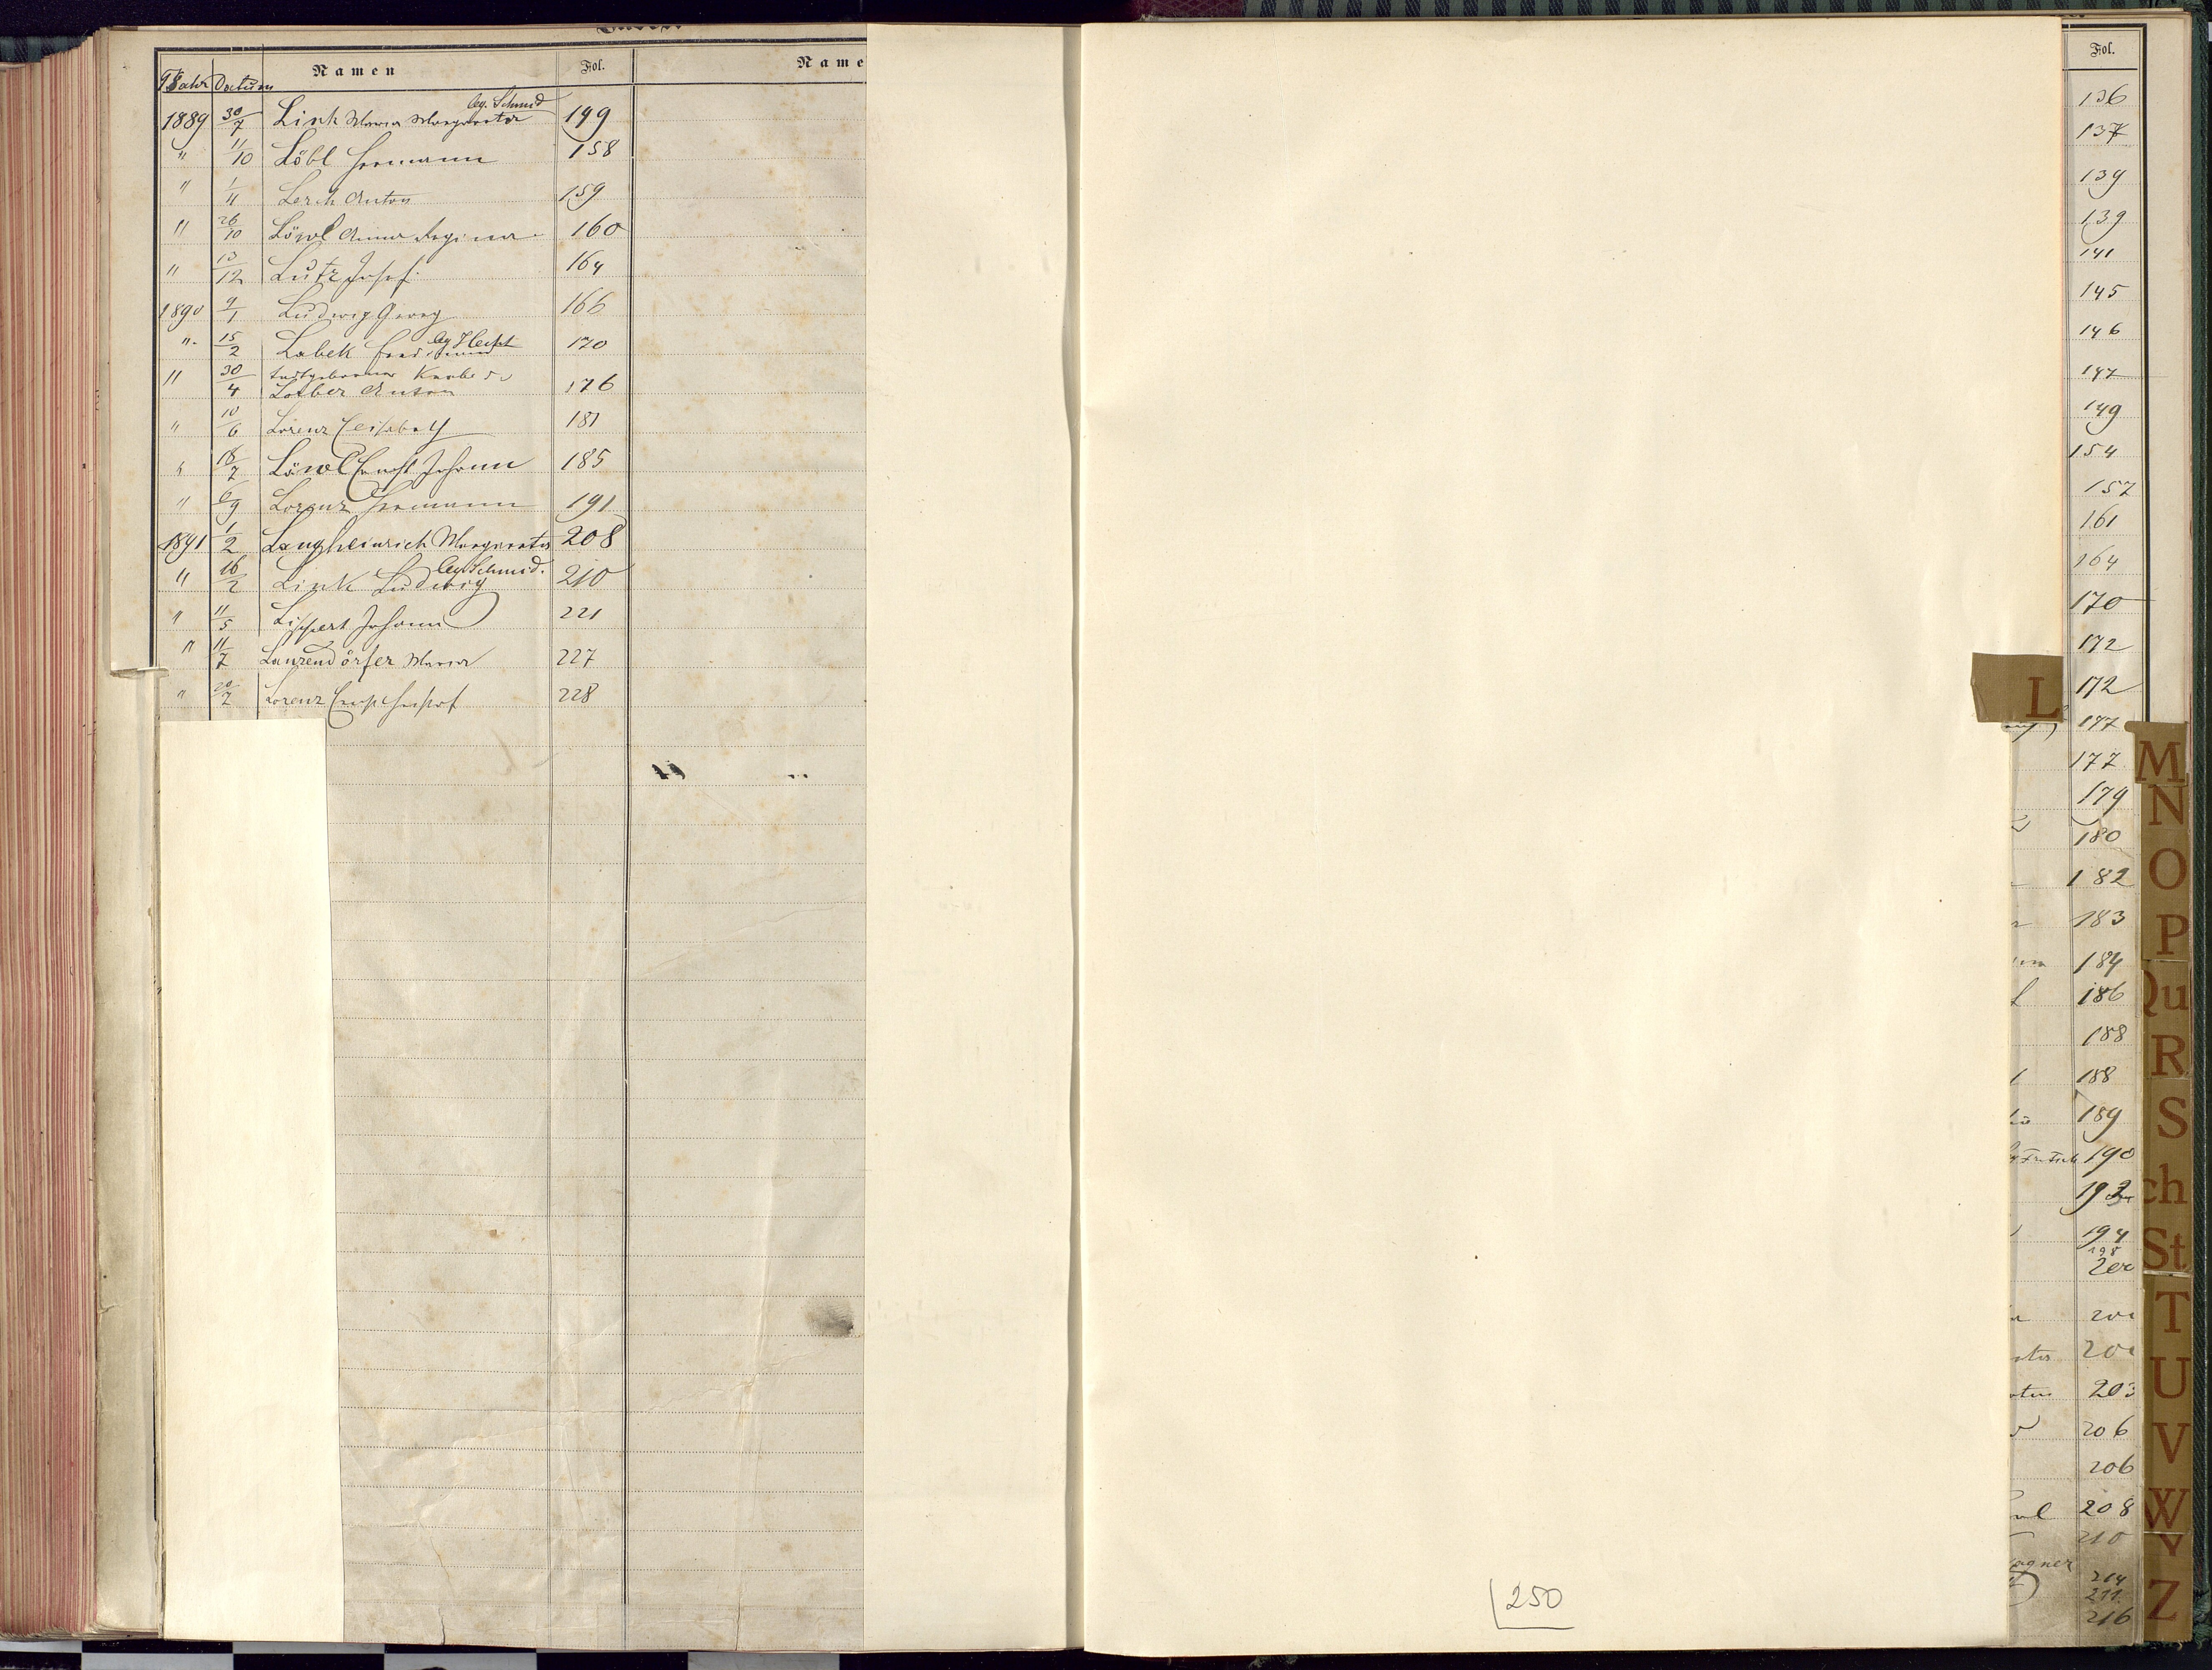 Jahr Datum Namen Fol. Name
leg. Schmid
1889 30/7 Link Maria Margareta 149
" 11/10 Löbl Hermann 158
" 1/11 Lerch Anton 159
" 26/10 Löwl Anna Regina 160
" 13/12 Lutz Josef 164
1890 9/1 Ludwig Georg 166
" 15/2 Labek 170
" 30/4 todtgeborener Knabe
Anton 176
" 10/6 Lorenz Elisabeth 181
" 18/7 Löwl Ernst Johann 185
" 6/9 Lorenz Hermann 191
1891 1/2 Langheinrich Margareta 208
leg. Schmid.
" 16/2 Link Ludwig 210
" 11/5 Lippert Johann 221
" 11/7 Lanzendörfer Maria 227
" 20/7 Lorenz 228
250
L
Fol.
136
137
139
139
141
145
146
147
149
154
157
161
164
170
172
172
177
177
179
180
182
183
184
186
188
188
189
Fritsch 190
192
194
198
203
206
206
208
210
214
211
216
M
N
O
P
Qu
R
S
ch
St
T
U
V
W
Y
Z